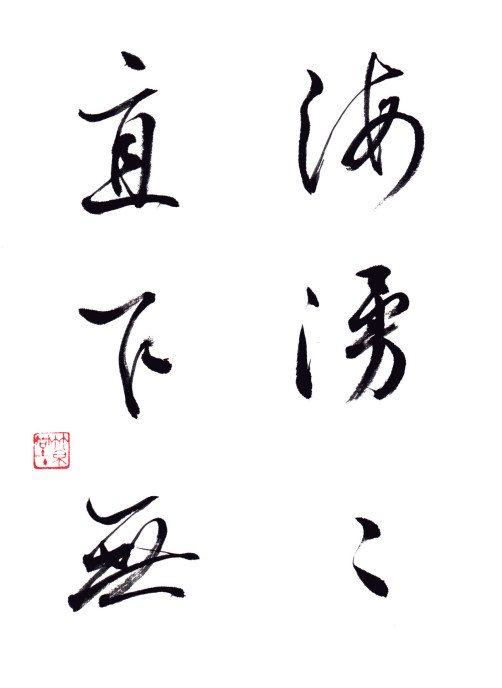 海湧々
直下無